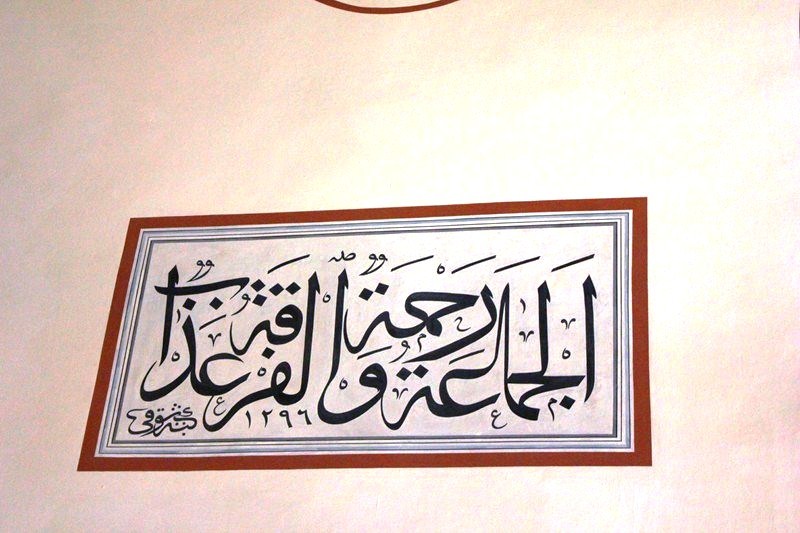 الجماعة رحمة والفرقة عذاب
١٢٩٦
كتبه شوقي